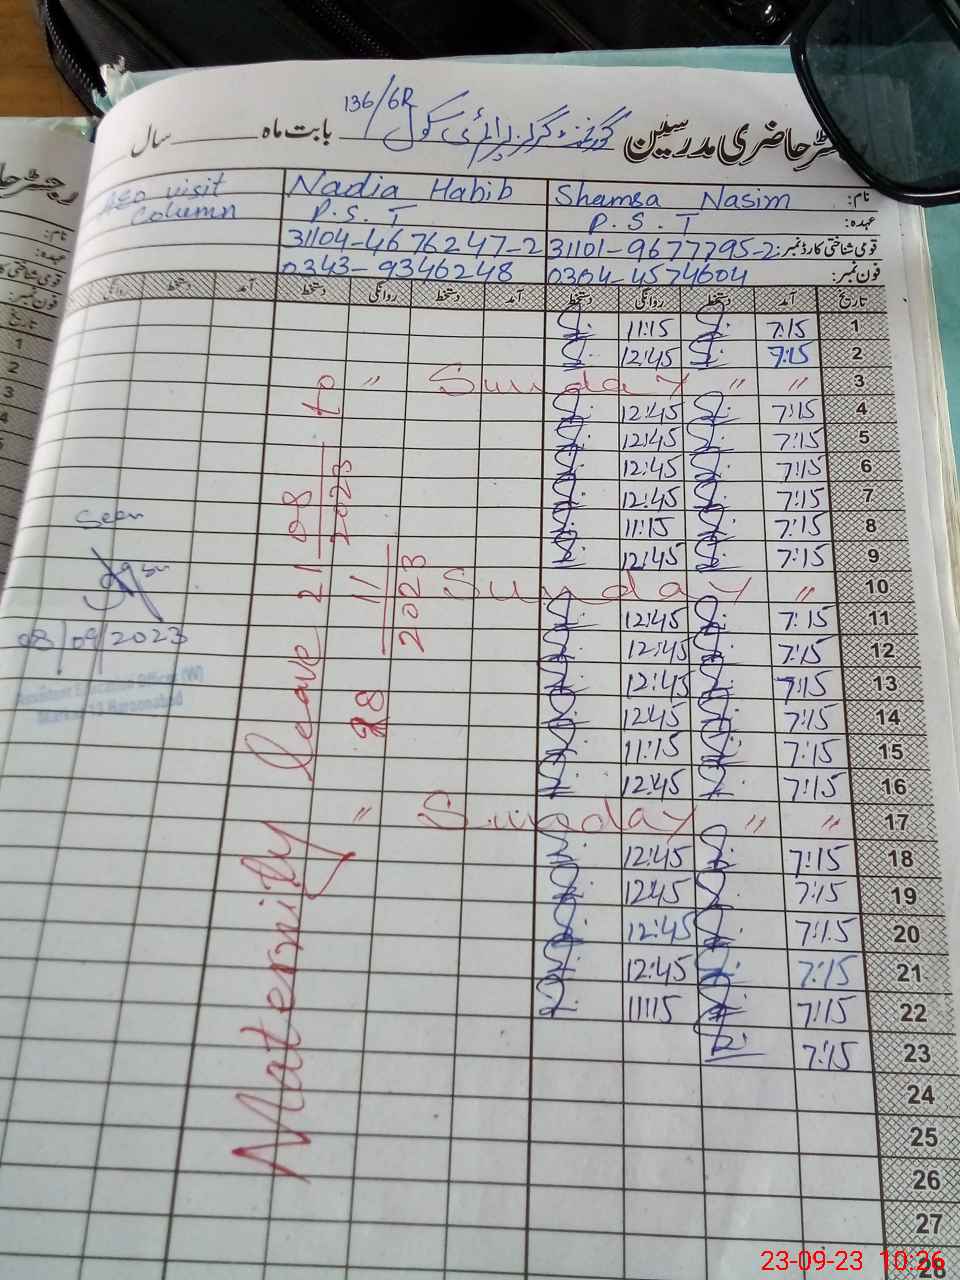 رجسٹر حاضری مدرسین گورنمنٹ گرلز پرائمری سکول 136/6R بابت ماہ سال
نام: Shamsa Nasim Nadia Habib AEO visit
عہدہ: P.S.T P.S.T Column
قومی شناختی کارڈ نمبر: 31101-9677795-2 31104-4676247-2
فون نمبر: 0304-4574604 0343-9346248
تاریخ آمد دستخط روانگی دستخط آمد دستخط روانگی دستخط آمد دستخط روانگی
1 7:15 11:15
2 7:15 12:45
3 " " Sunday "
4 7:15 12:45
5 7:15 12:45
6 7:15 12:45
7 7:15 12:45
8 7:15 11:15
9 7:15 12:45
10 " Sunday
11 7:15 12:45
12 7:15 12:45
13 7:15 12:45
14 7:15 12:45
15 7:15 11:15
16 7:15 12:45
17 " " Sunday "
18 7:15 12:45
19 7:15 12:45
20 7:15 12:45
21 7:15 12:45
22 7:15 11:15
23 7:15
24
25
26
27
28
Maternity leave 21/08/2023 to
28/11/2023
Seen
08/09/2023
رجسٹر حا
نام:
عہدہ:
فون نمبر:
تاریخ
1
2
3
4
23-09-23 10:26